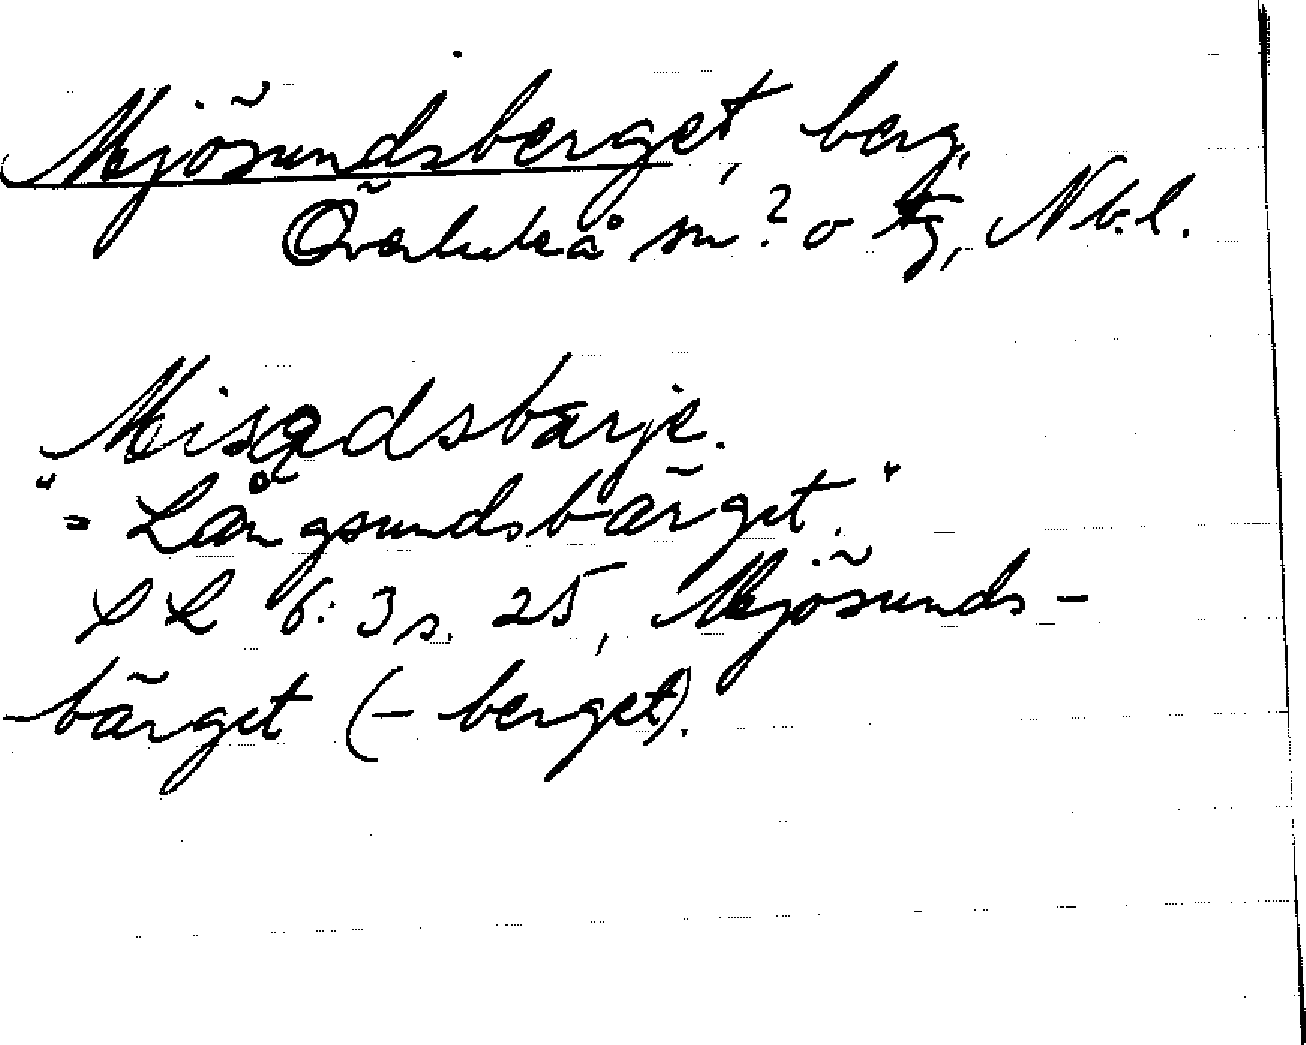 Mjösundsberget, berg,
Överluleå sn? o tg, Nb. l.
Misądsbarje.
"= Långsundsbärget."
XR 6: 3 s. 25, Mjösunds-
bärget (-berget).